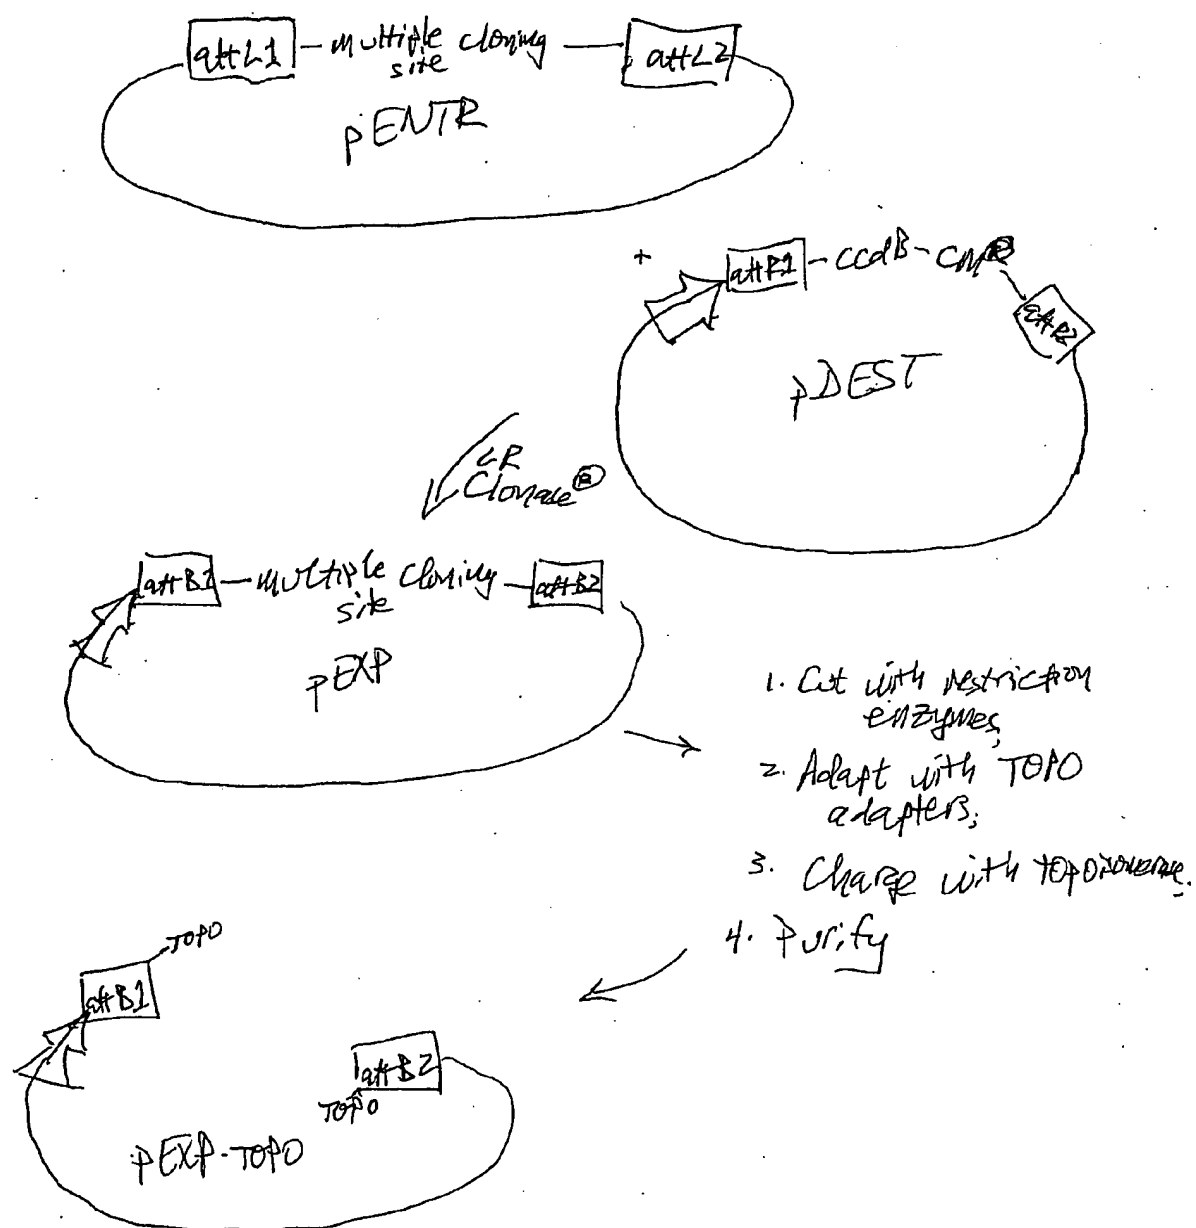 attL1 — multiple cloning — attL2
site
pENTR
+ attR1 - ccdB - CmR
attR2
pDEST
LR
Clonase®
attB1 — multiple cloning — attB2
site
pEXP
1. Cut with restriction
enzymes;
2. Adapt with TOPO
adapters;
3. Charge with topoisomerase.
4. Purify
TOPO
attB1
attB2
TOPO
pEXP-TOPO